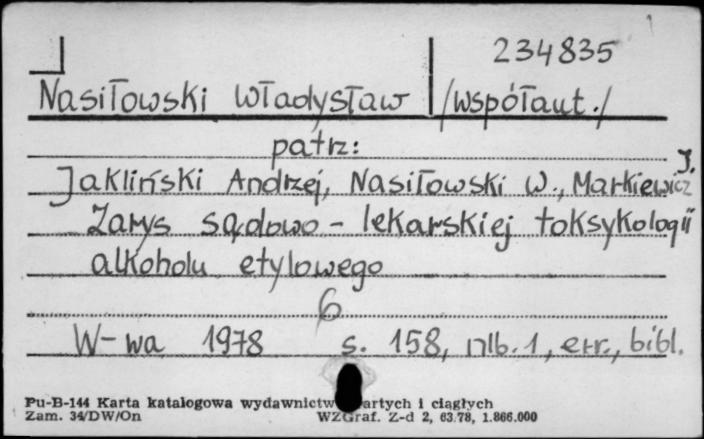 234835
Nasiłowski Władysław /współaut./
patrz:
Jakliński Andrzej, Nasiłowski W., Markiewicz J.
Zarys sądowo - lekarskiej toksykologii
alkoholu etylowego
6
W-wa 1978 s. 158, nlb. 1, err., bibl.
Pu-B-144 Karta katalogowa wydawnictw artych i ciągłych
Zam. 34/DW/On WZGraf. Z-d 2, 63.78, 1.866.000